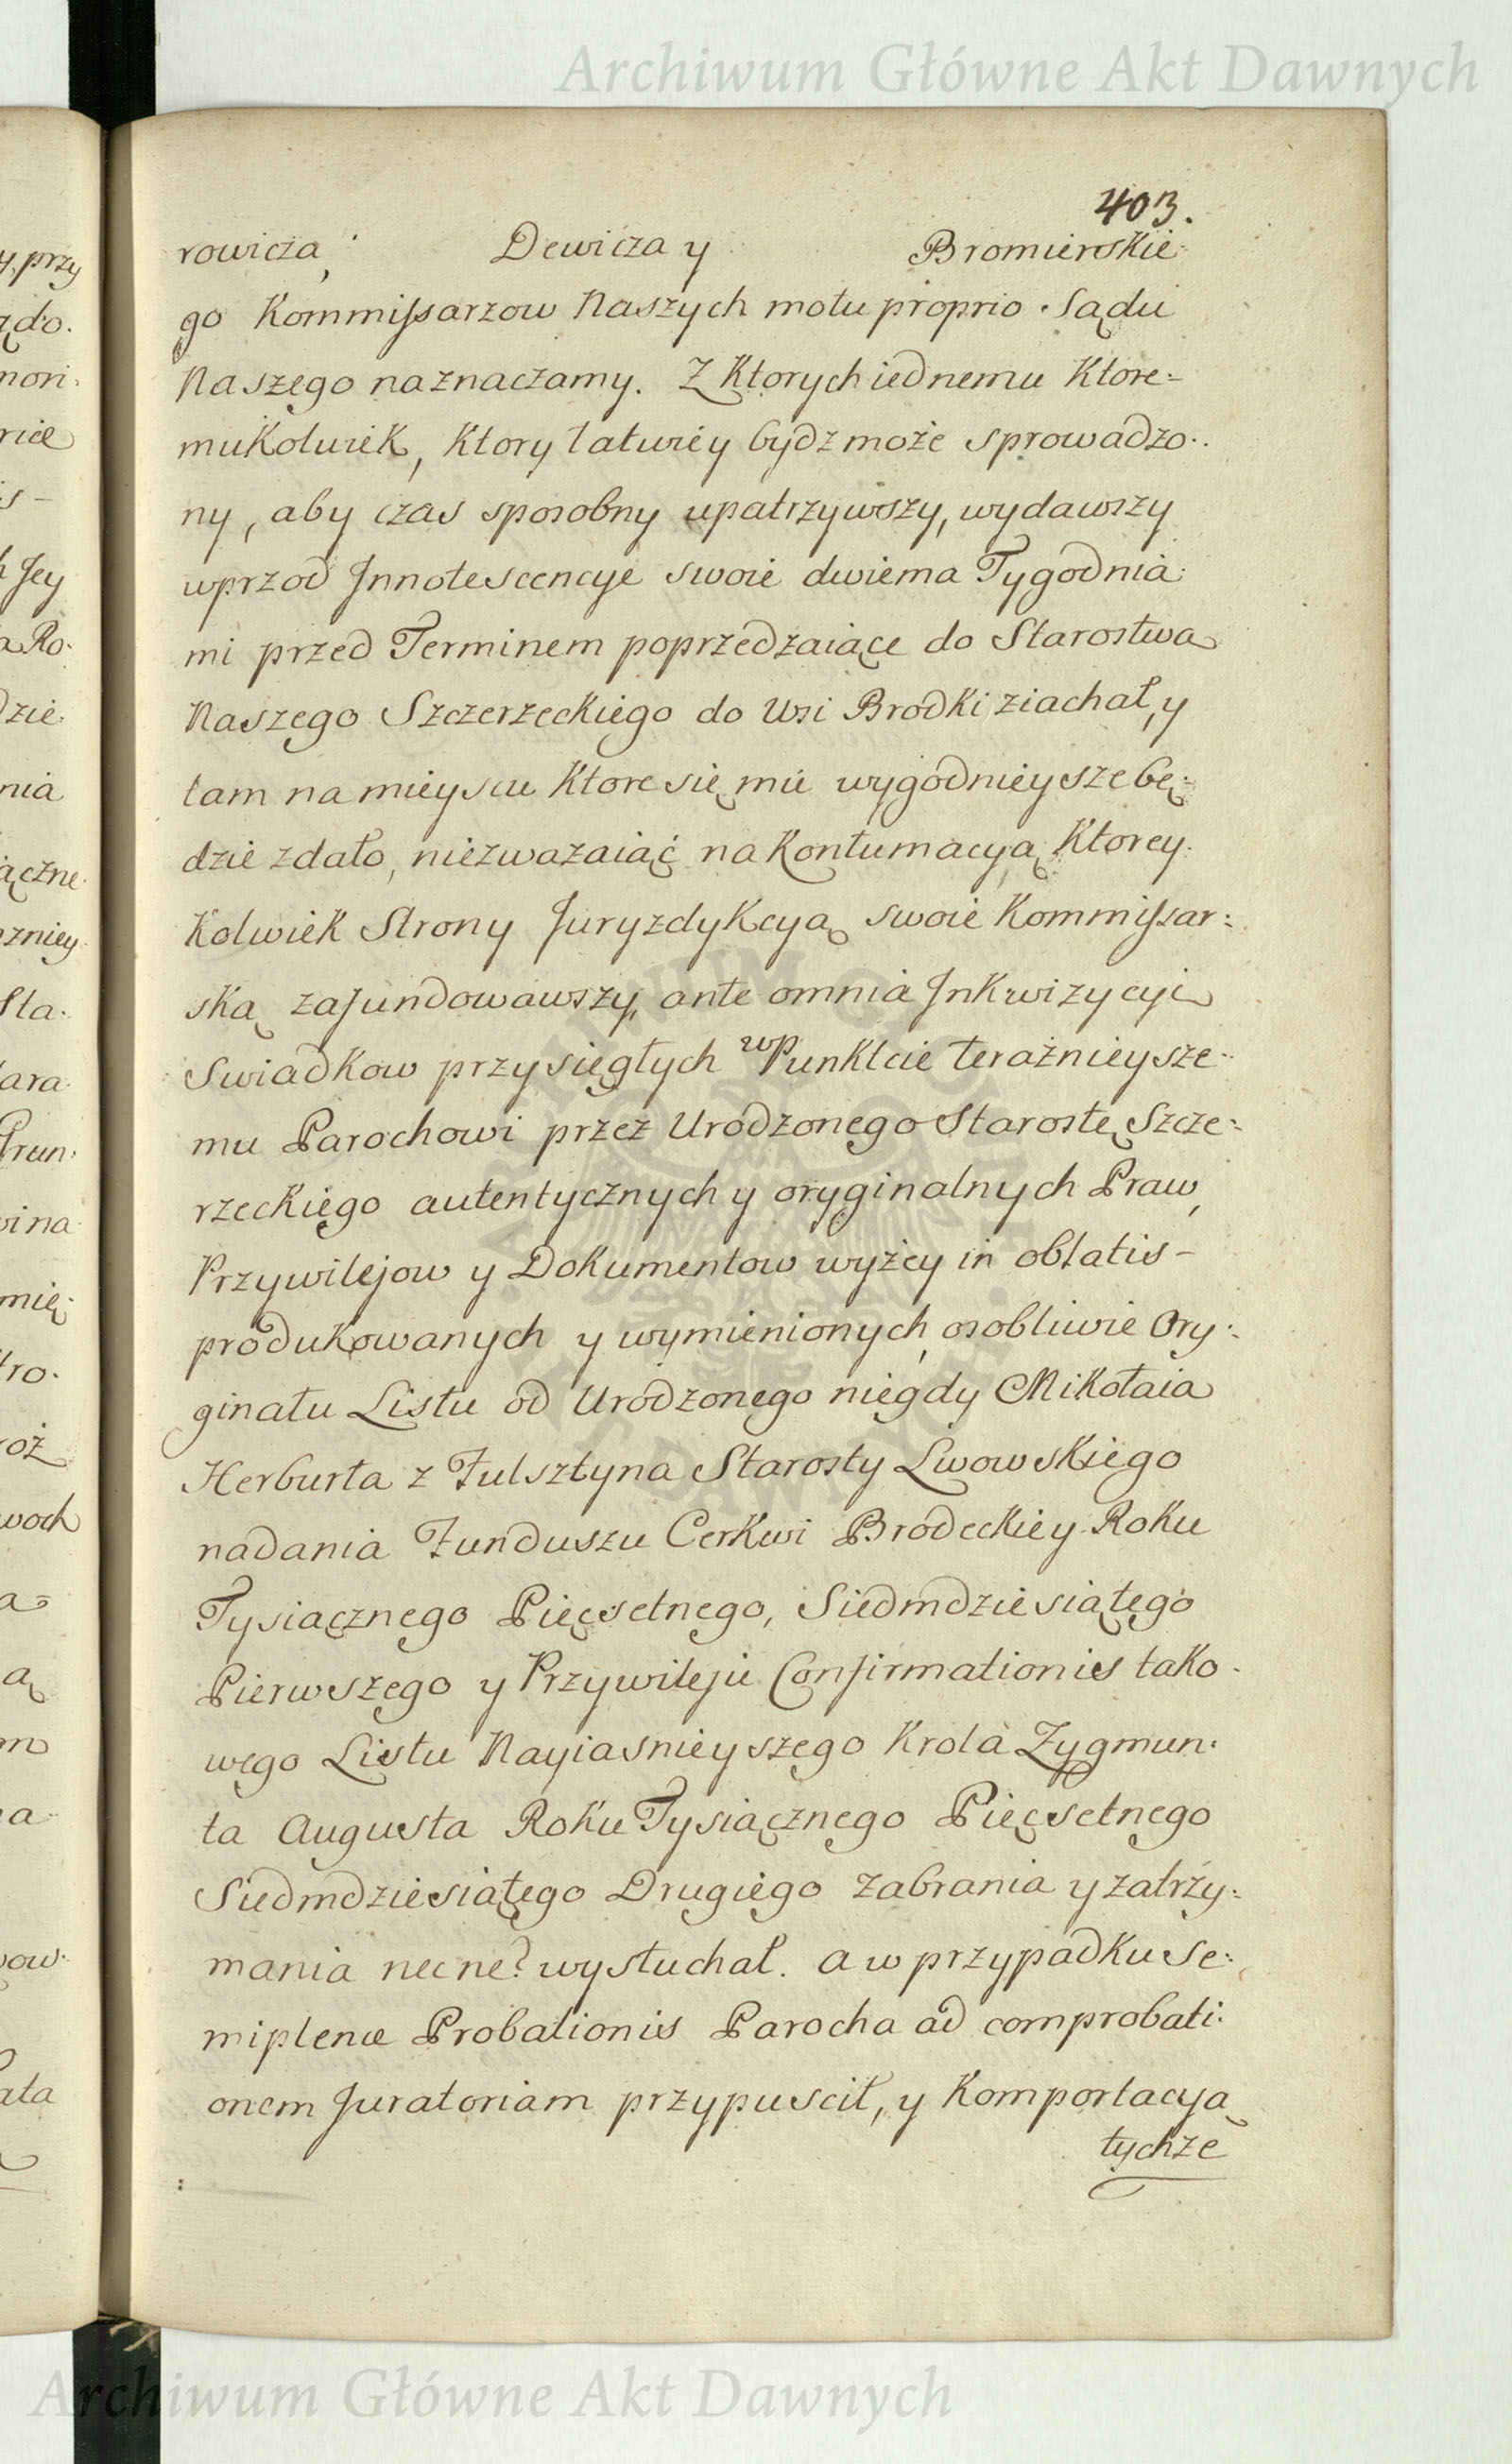 Archiwum Główne Akt Dawnych
403.
rowicza, Dewicza y Bromierskie-
go Kommissarzow Naszych motu proprio Sądu
Naszego naznaczamy. Z Ktorych iednemu Ktore-
mukolwiek, Ktory łatwiey bydz może sprowadzo-
ny, aby czas sposobny upatrzywszy, wydawszy
wprzod Innotescencye swoie dwiema Tygodnia-
mi przed Terminem poprzedzaiące do Starostwa
Naszego Szczerzeckiego do Wsi Brodki ziachał, y
tam na mieyscu Ktore się mu wygodnieysze bę-
dzie zdało, niezwazaiąć na Kontumacyą Ktorey-
Kolwiek Strony Juryzdykcyą swoie Kommissar-
ską zafundowawszy, ante omnia Inkwizycyi
Swiadkow przysięgłych w Punkcie teraźnieysze-
mu Parochowi przez Urodzonego Starostę Szcze-
rzeckiego autentycznych y oryginalnych Praw,
Przywilejow y Dokumentow wyżey in oblatis
produkowanych y wymienionych, osobliwie Ory-
ginału Listu od Urodzonego niegdy Mikołaia
Herburta z Fulsztyna Starosty Lwowskiego
nadania Funduszu Cerkwi Brodeckiey Roku
Tysiącznego Pięcsetnego, Siedmdziesiątego
Pierwszego y Przywileju Confirmationis tako-
wego Listu Nayiasnieyszego Krola Zygmun-
ta Augusta Roku Tysiącznego Pięcsetnego
Siedmdziesiątego Drugiego zabrania y zatrzy-
mania necne? wysłuchał. a w przypadku Se-
miplenæ Probationis Parocha ad comprobati-
onem Juratoriam przypuscił, y Komportacyą
tychze
Archiwum Główne Akt Dawnych